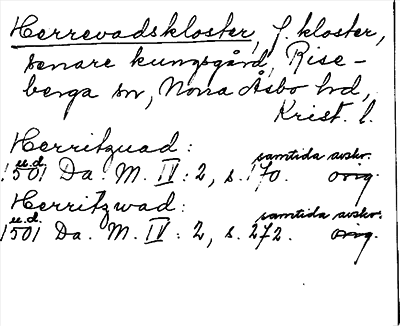 Herrevadskloster, f. kloster,
senare kungsgård, Rise-
berga sn, Norra Åsbo hd,
Krist. l.
Herritzuad:
u.d. samtida avskr.
1501 Da. M. IV: 2, s. 170. orig.
Herritzwad:
u.d. samtida avskr.
1501 Da. M. IV: 2, s. 272. orig.